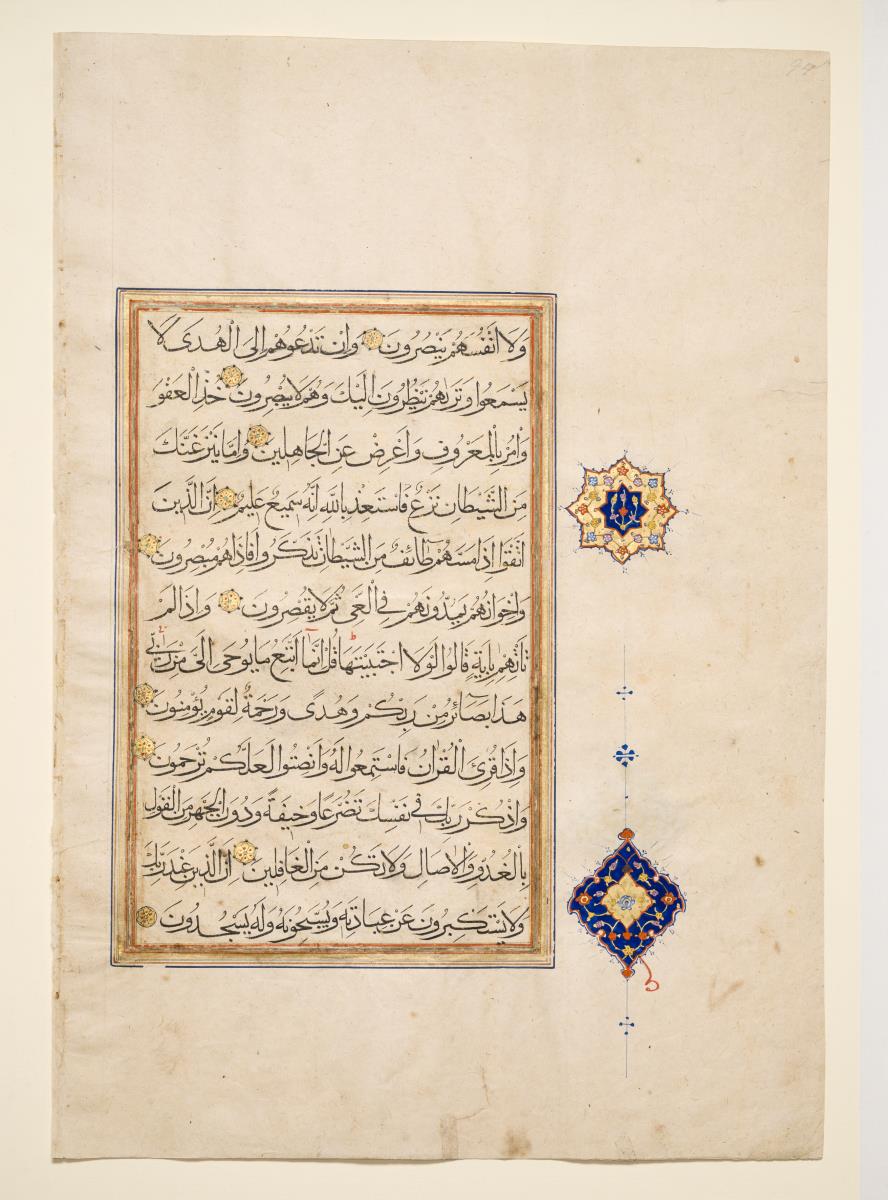 وَلَا أَنْفُسَهُمْ يَنْصُرُونَ وَإِنْ تَدْعُوهُمْ إِلَى الْهُدَى لَا
يَسْمَعُوا وَتَرَاهُمْ يَنْظُرُونَ إِلَيْكَ وَهُمْ لَا يُبْصِرُونَ خُذِ الْعَفْوَ
وَأْمُرْ بِالْمَعْرُوفِ وَأَعْرِضْ عَنِ الْجَاهِلِينَ وَإِمَّا يَنْزَغَنَّكَ
مِنَ الشَّيْطَانِ نَزْغٌ فَاسْتَعِذْ بِاللَّهِ إِنَّهُ سَمِيعٌ عَلِيمٌ إِنَّ الَّذِينَ
اتَّقَوْا إِذَا مَسَّهُمْ طَائِفٌ مِنَ الشَّيْطَانِ تَذَكَّرُوا فَإِذَا هُمْ مُبْصِرُونَ
وَإِخْوَانُهُمْ يَمُدُّونَهُمْ فِي الْغَيِّ ثُمَّ لَا يُقْصِرُونَ وَإِذَا لَمْ
تَأْتِهِمْ بِآيَةٍ قَالُوا لَوْلَا اجْتَبَيْتَهَا قُلْ إِنَّمَا أَتَّبِعُ مَا يُوحَى إِلَيَّ مِنْ رَبِّي
هَذَا بَصَائِرُ مِنْ رَبِّكُمْ وَهُدًى وَرَحْمَةٌ لِقَوْمٍ يُؤْمِنُونَ
وَإِذَا قُرِئَ الْقُرْآنُ فَاسْتَمِعُوا لَهُ وَأَنْصِتُوا لَعَلَّكُمْ تُرْحَمُونَ
وَاذْكُرْ رَبَّكَ فِي نَفْسِكَ تَضَرُّعًا وَخِيفَةً وَدُونَ الْجَهْرِ مِنَ الْقَوْلِ
بِالْغُدُوِّ وَالْآصَالِ وَلَا تَكُنْ مِنَ الْغَافِلِينَ إِنَّ الَّذِينَ عِنْدَ رَبِّكَ
لَا يَسْتَكْبِرُونَ عَنْ عِبَادَتِهِ وَيُسَبِّحُونَهُ وَلَهُ يَسْجُدُونَ